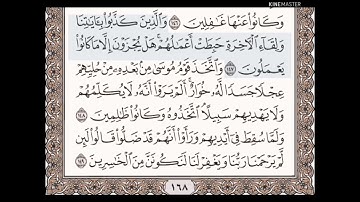 KINEMASTER
وَكَانُوا۟ عَنْهَا غَٰفِلِينَ ١٤٦ وَٱلَّذِينَ كَذَّبُوا۟ بِـَٔايَٰتِنَا
وَلِقَآءِ ٱلْءَاخِرَةِ حَبِطَتْ أَعْمَٰلُهُمْ ۚ هَلْ يُجْزَوْنَ إِلَّا مَا كَانُوا۟
يَعْمَلُونَ ١٤٧ وَٱتَّخَذَ قَوْمُ مُوسَىٰ مِنۢ بَعْدِهِۦ مِنْ حُلِيِّهِمْ
عِجْلًا جَسَدًا لَّهُۥ خُوَارٌ ۚ أَلَمْ يَرَوْا۟ أَنَّهُۥ لَا يُكَلِّمُهُمْ
وَلَا يَهْدِيهِمْ سَبِيلًا ۘ ٱتَّخَذُوهُ وَكَانُوا۟ ظَٰلِمِينَ ١٤٨
وَلَمَّا سُقِطَ فِىٓ أَيْدِيهِمْ وَرَأَوْا۟ أَنَّهُمْ قَدْ ضَلُّوا۟ قَالُوا۟ لَئِن
لَّمْ يَرْحَمْنَا رَبُّنَا وَيَغْفِرْ لَنَا لَنَكُونَنَّ مِنَ ٱلْخَٰسِرِينَ ١٤٩
١٦٨